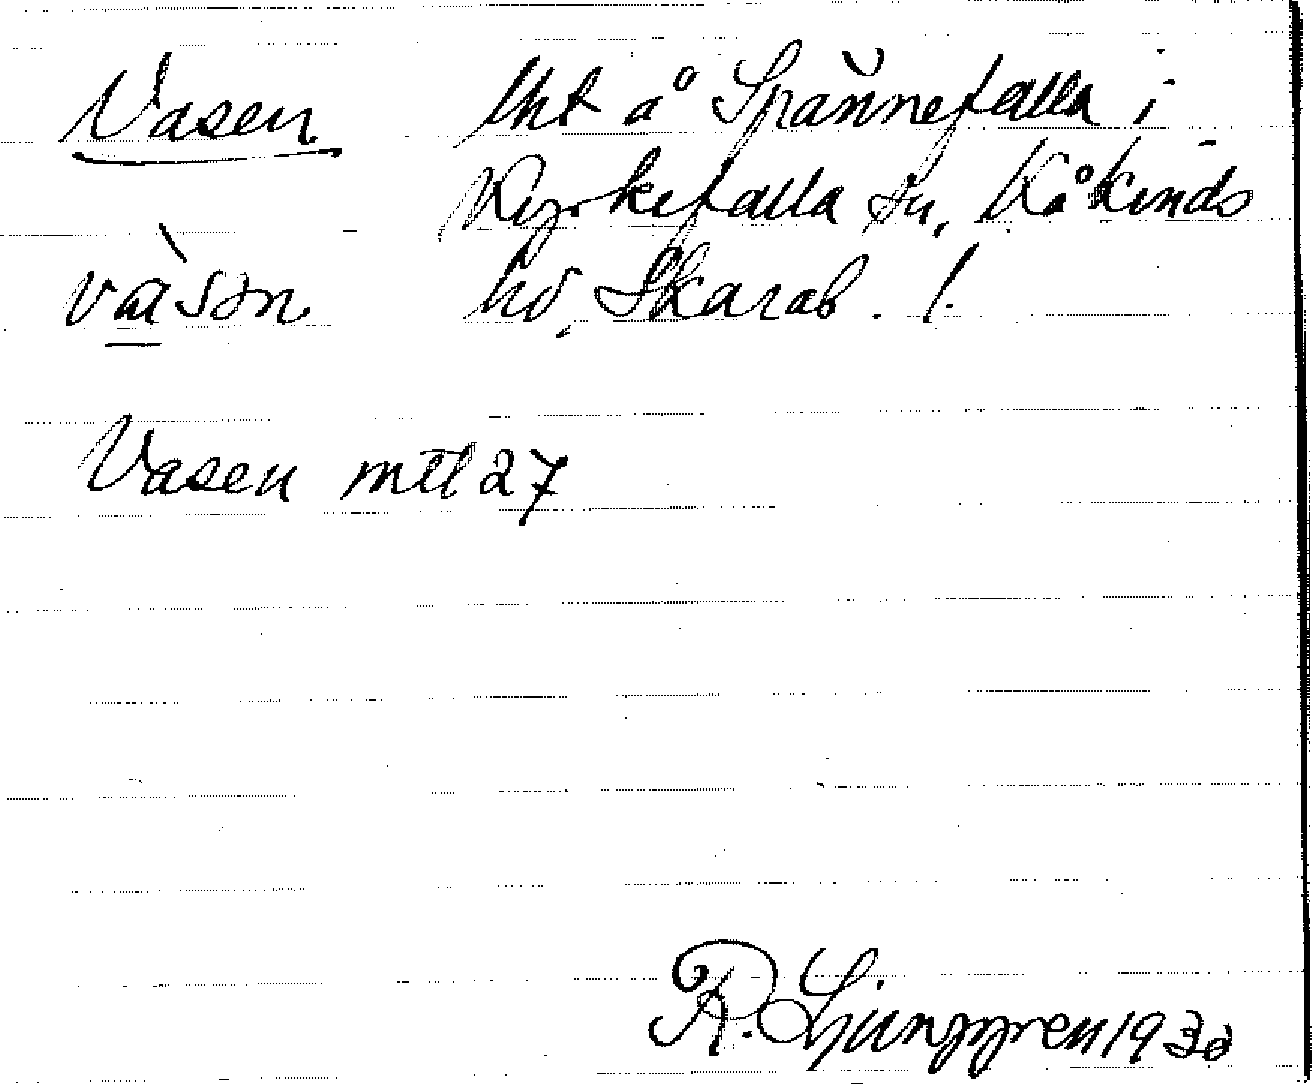 Vasen lht å Spännefalla i
Kyrkefalla sn, Kåkinds
vàsən hd, Skarab. l.
Vasen mtl 27
R. Ljunggren 1930